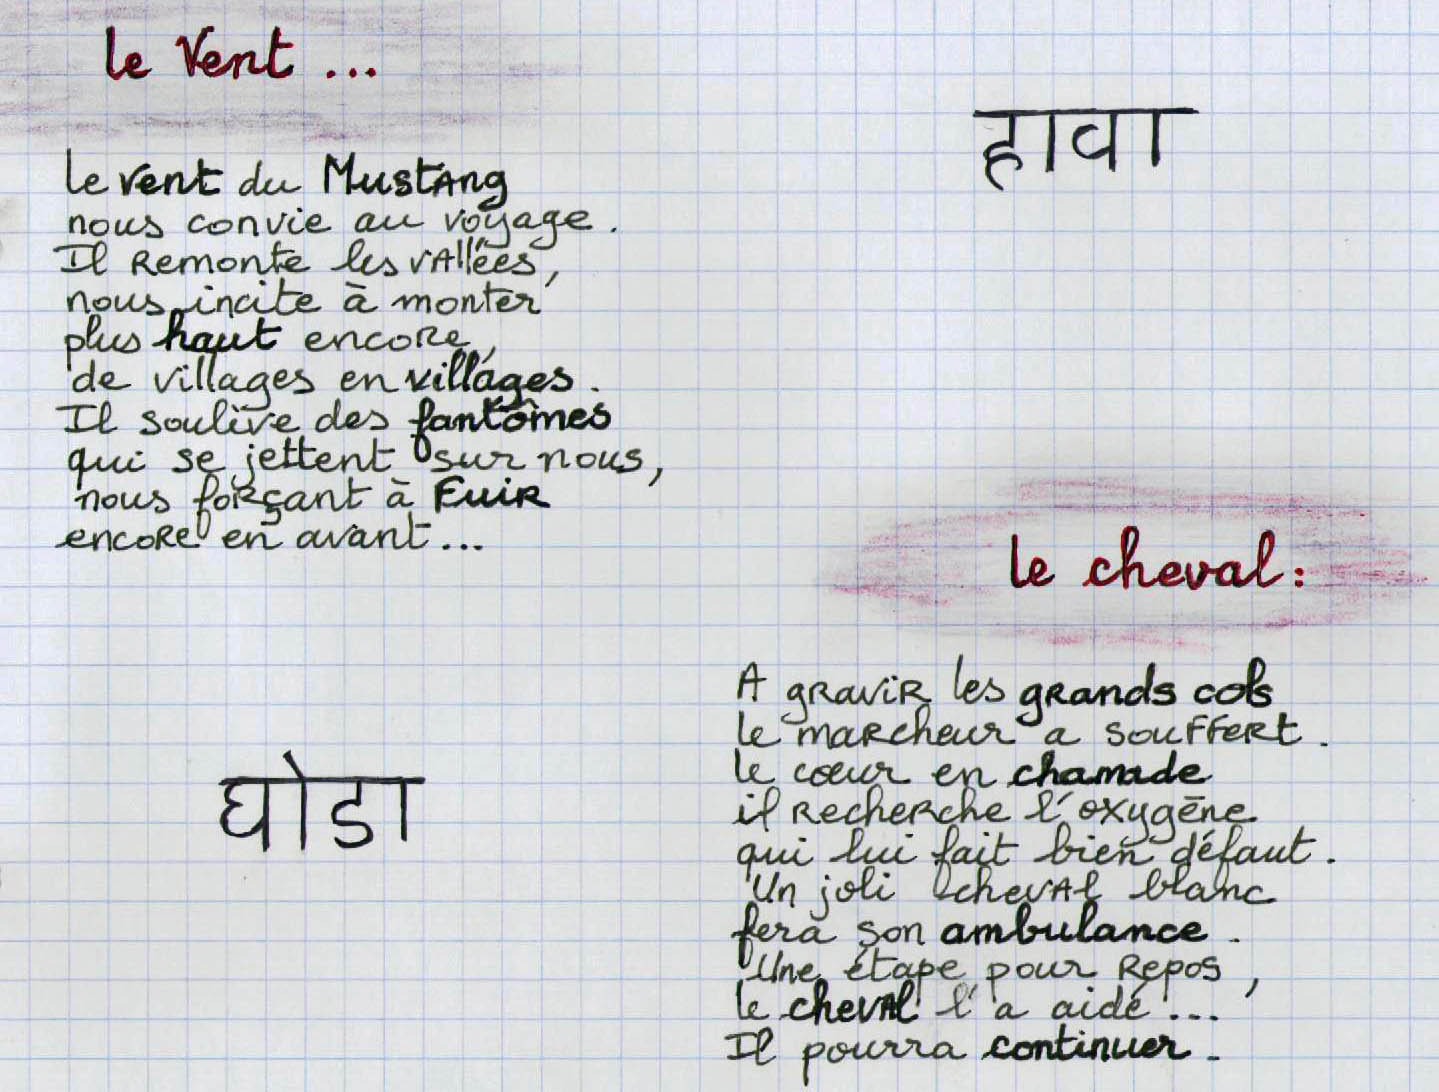 le Vent ...
हावा
le vent du Mustang
nous convie au voyage.
Il remonte les vallées,
nous incite à monter
plus haut encore,
de villages en villages.
Il soulève des fantômes
qui se jettent sur nous,
nous forçant à Fuir
encore en avant...
le cheval:
घोडा
A gravir les grands cols
le marcheur a souffert.
le cœur en chamade
il recherche l'oxygène
qui lui fait bien défaut.
Un joli cheval blanc
fera son ambulance.
Une étape pour repos,
le cheval l'a aidé...
Il pourra continuer.